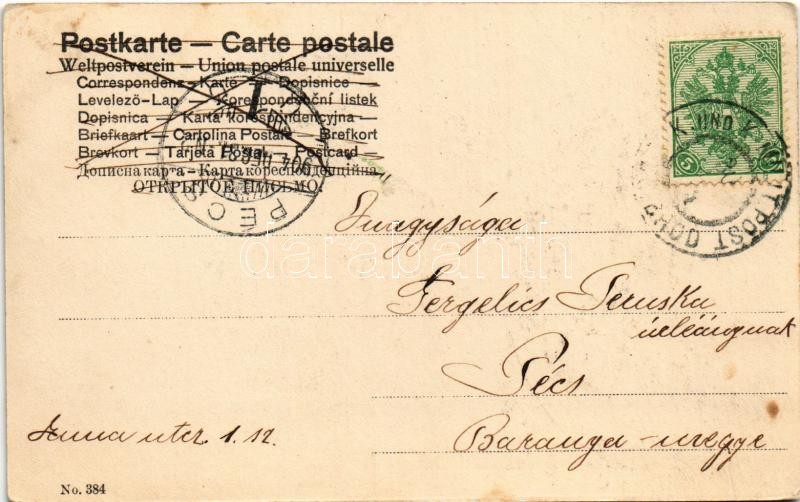 Postkarte — Carte postale
Weltpostverein — Union postale universelle
Correspondenz-Karte — Dopisnice
Levelező-Lap — Korespondenční listek
Dopisnica — Karta korespondencyjna —
Briefkaart — Cartolina Postale — Brefkort
Brevkort — Tarjeta Postal — Postcard —
Дописна карта — Карта кореспонденційна
ОТКРЫТОЕ ПИСЬМО.
PÉCS
904
5
K. UND K. MILIT. POST
Nagysága
Gergelics Teruska
úrleánynak
Pécs
Baranya-megye
Anna utcz. 1. sz.
No. 384
darabanth